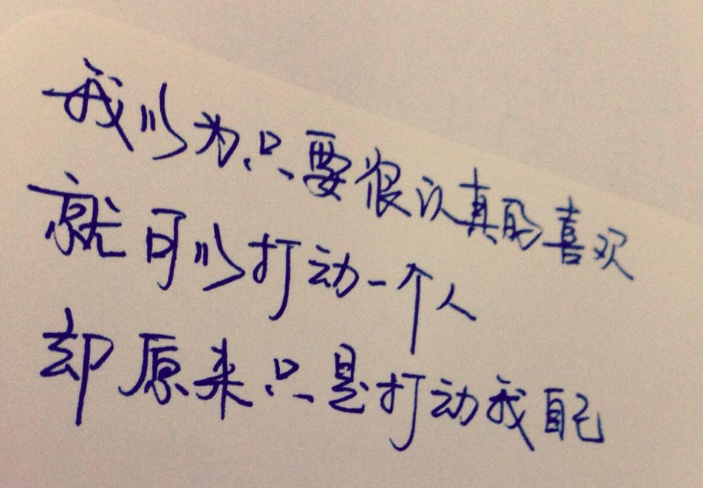 我以为只要很认真的喜欢
就可以打动一个人
却原来只是打动我自己